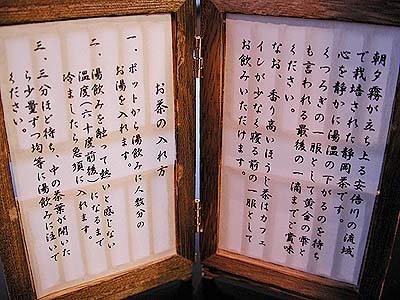 朝夕霧が立ち上る安倍川の流域
で栽培された静岡茶です。
心を静かに湯温の下がるのを待ち
くつろぎの一服として黄金の雫と
も言われる最後の一滴までご賞味
ください。
なお、香り高いほうじ茶はカフェ
インが少なく寝る前の一服として
お飲みいただけます。
お茶の入れ方
一、ポットから湯飲みに人数分の
お湯を入れます。
二、湯飲みを触って熱いと感じない
温度（六十度前後）になるまで
冷ましたら急須に入れます。
三、三分ほど待ち、中の茶葉が開いた
ら少量ずつ均等に湯飲みに注いで
ください。